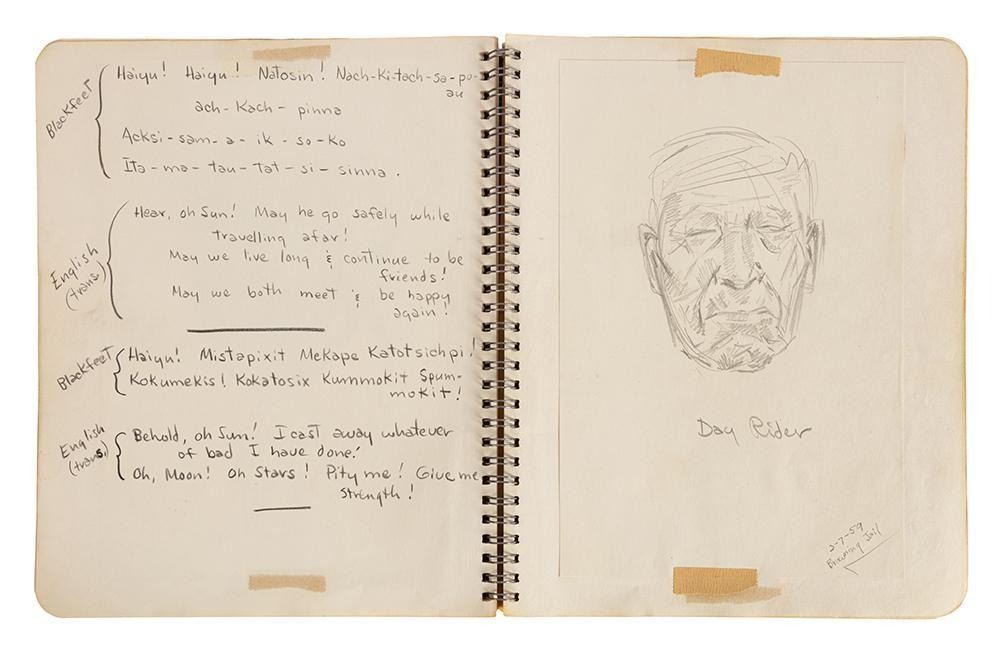 Blackfeet
Haiyu! Haiyu! Natosin! Nach-Ki-tach-sa-po-
au
ach-Kach-pinna
Acksi-sam-a-ik-so-ko
Ita-ma-tau-tat-si-sinna.
English
(trans.)
Hear, oh Sun! May he go safely while
travelling afar!
May we live long & continue to be
friends!
May we both meet & be happy
again!
Blackfeet
Haiyu! Mistapixit Mekape Katotsichpi!
Kokumekis! Kokatosix Kummokit Spum-
mokit!
English
(trans.)
Behold, oh Sun! I cast away whatever
of bad I have done.
Oh, Moon! Oh Stars! Pity me! Give me
strength!
Day Rider
2-7-59
Browning Jail